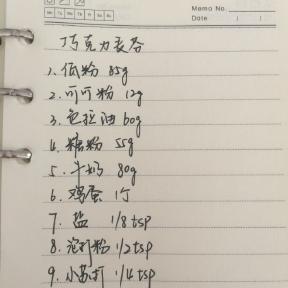 Memo No.
Date / /
Mo Tu We Th Fr Sa Su
巧克力表谷
1、低粉 85g
2、可可粉 12g
3、色拉油 60g
4、糖粉 55g
5、牛奶 80g
6、鸡蛋 1个
7、盐 1/8 tsp
8、泡打粉 1/2 tsp
9、小苏打 1/4 tsp